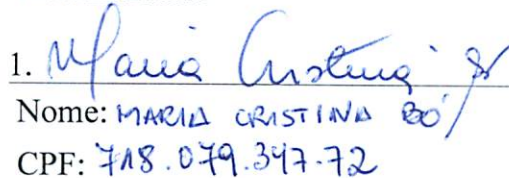 1. Maria Cristina Bó
Nome: MARIA CRISTINA BÓ
CPF: 718.079.347-72